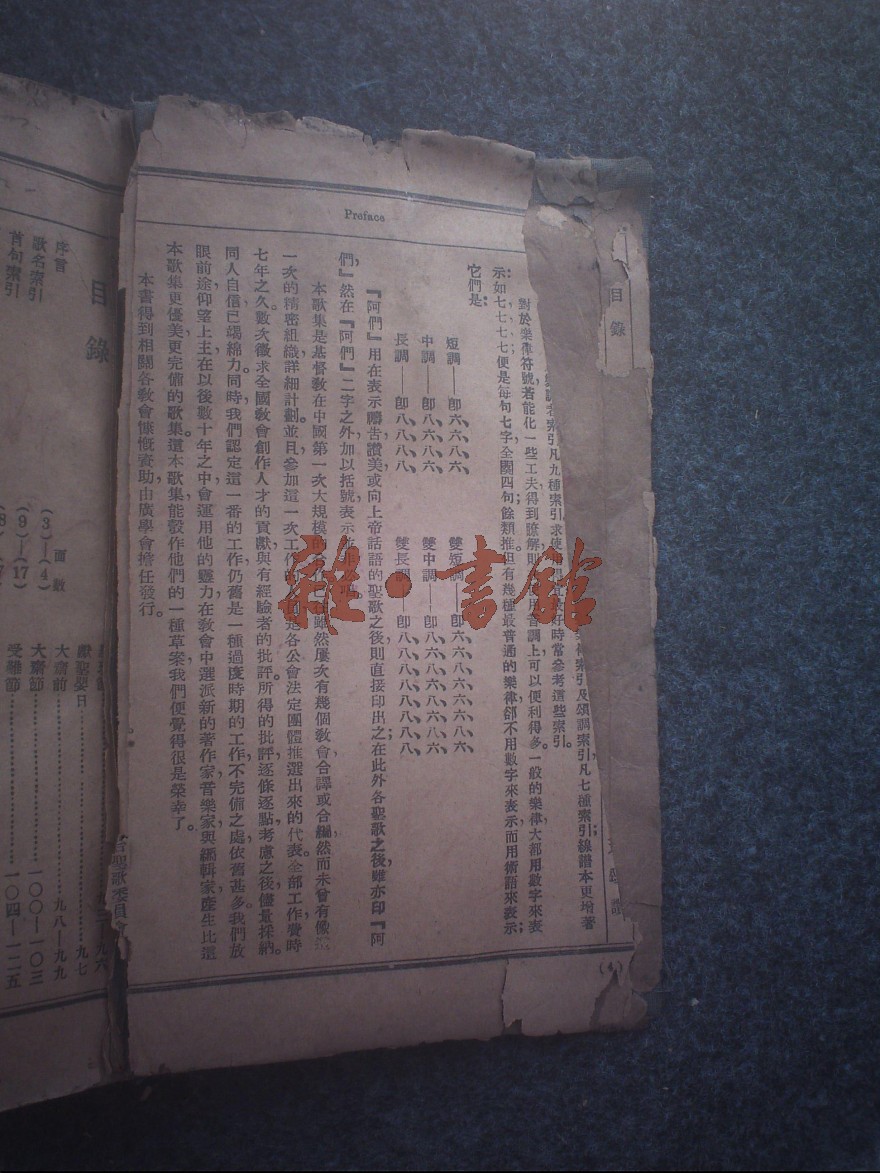 Preface
目錄
索引及頌調索引,凡七種索引;線譜本更增著
者索引凡九種索引,求使
好時常參考這些索引。
對於樂律符號,若能化一些工夫,得到瞭解,則
用音調上可以便利得多。一般的樂律大都用數字來表
示:如七、七、七、七、便是每句七字,全闋四句,餘類推。但有幾種最普通的樂律,卻不用數字來表示,而用術語來表示;
它們是:
短調——卽六、六、八、六、 雙短調——卽六、六、八、六、六、六、八、六、
中調——卽八、六、八、六、 雙中調——卽八、六、八、六、八、六、八、六、
長調——卽八、八、八、八、 雙長調——卽八、八、八、八、八、八、八、八、
『阿們』用在表示禱告讚美或向上帝話語的聖歌之後,則直接印出之;在此外各聖歌之後,雖亦印『阿
們,』然在『阿們』二字之外,加以括號,表示
本歌集是基督教在中國第一次大規模的
雖然屢次有幾個敎會合譯或合編,然而未曾有像這
一次的精密組織,詳細計劃。並且參加這一次工作的
是各公會法定團體推選出來的代表。全部工作費時
七年之久,數次徵求全國敎會創作人才的貢獻,與有經驗者的批評。所得的批評,逐條逐點,考慮之後,儘量採納。
同人自信已竭綿力。同時我們認定這一番的工作,仍舊是一種過度時期的工作,不完備之處,依舊甚多。我們放
眼前途,仰望上主,在以後數十年之中,會運用他的靈力,在敎會中選派新的著作家,音樂家,與編輯家,產生比這
本歌集更優美,更完備的歌集。這本歌集能彀作他們的一種草案,我們便覺得很是榮幸了。
本書得到相關各敎會慷慨資助,由廣學會擔任發行。
聖歌委員會
(4)
雜·書館
目錄
面數
序言 (3)—(4)
歌名索引 (9)—(17)
首句索引
獻聖嬰日 九七
大齋前 九八—九九
大齋節 一〇〇—一〇三
受難節 一〇四—一二五